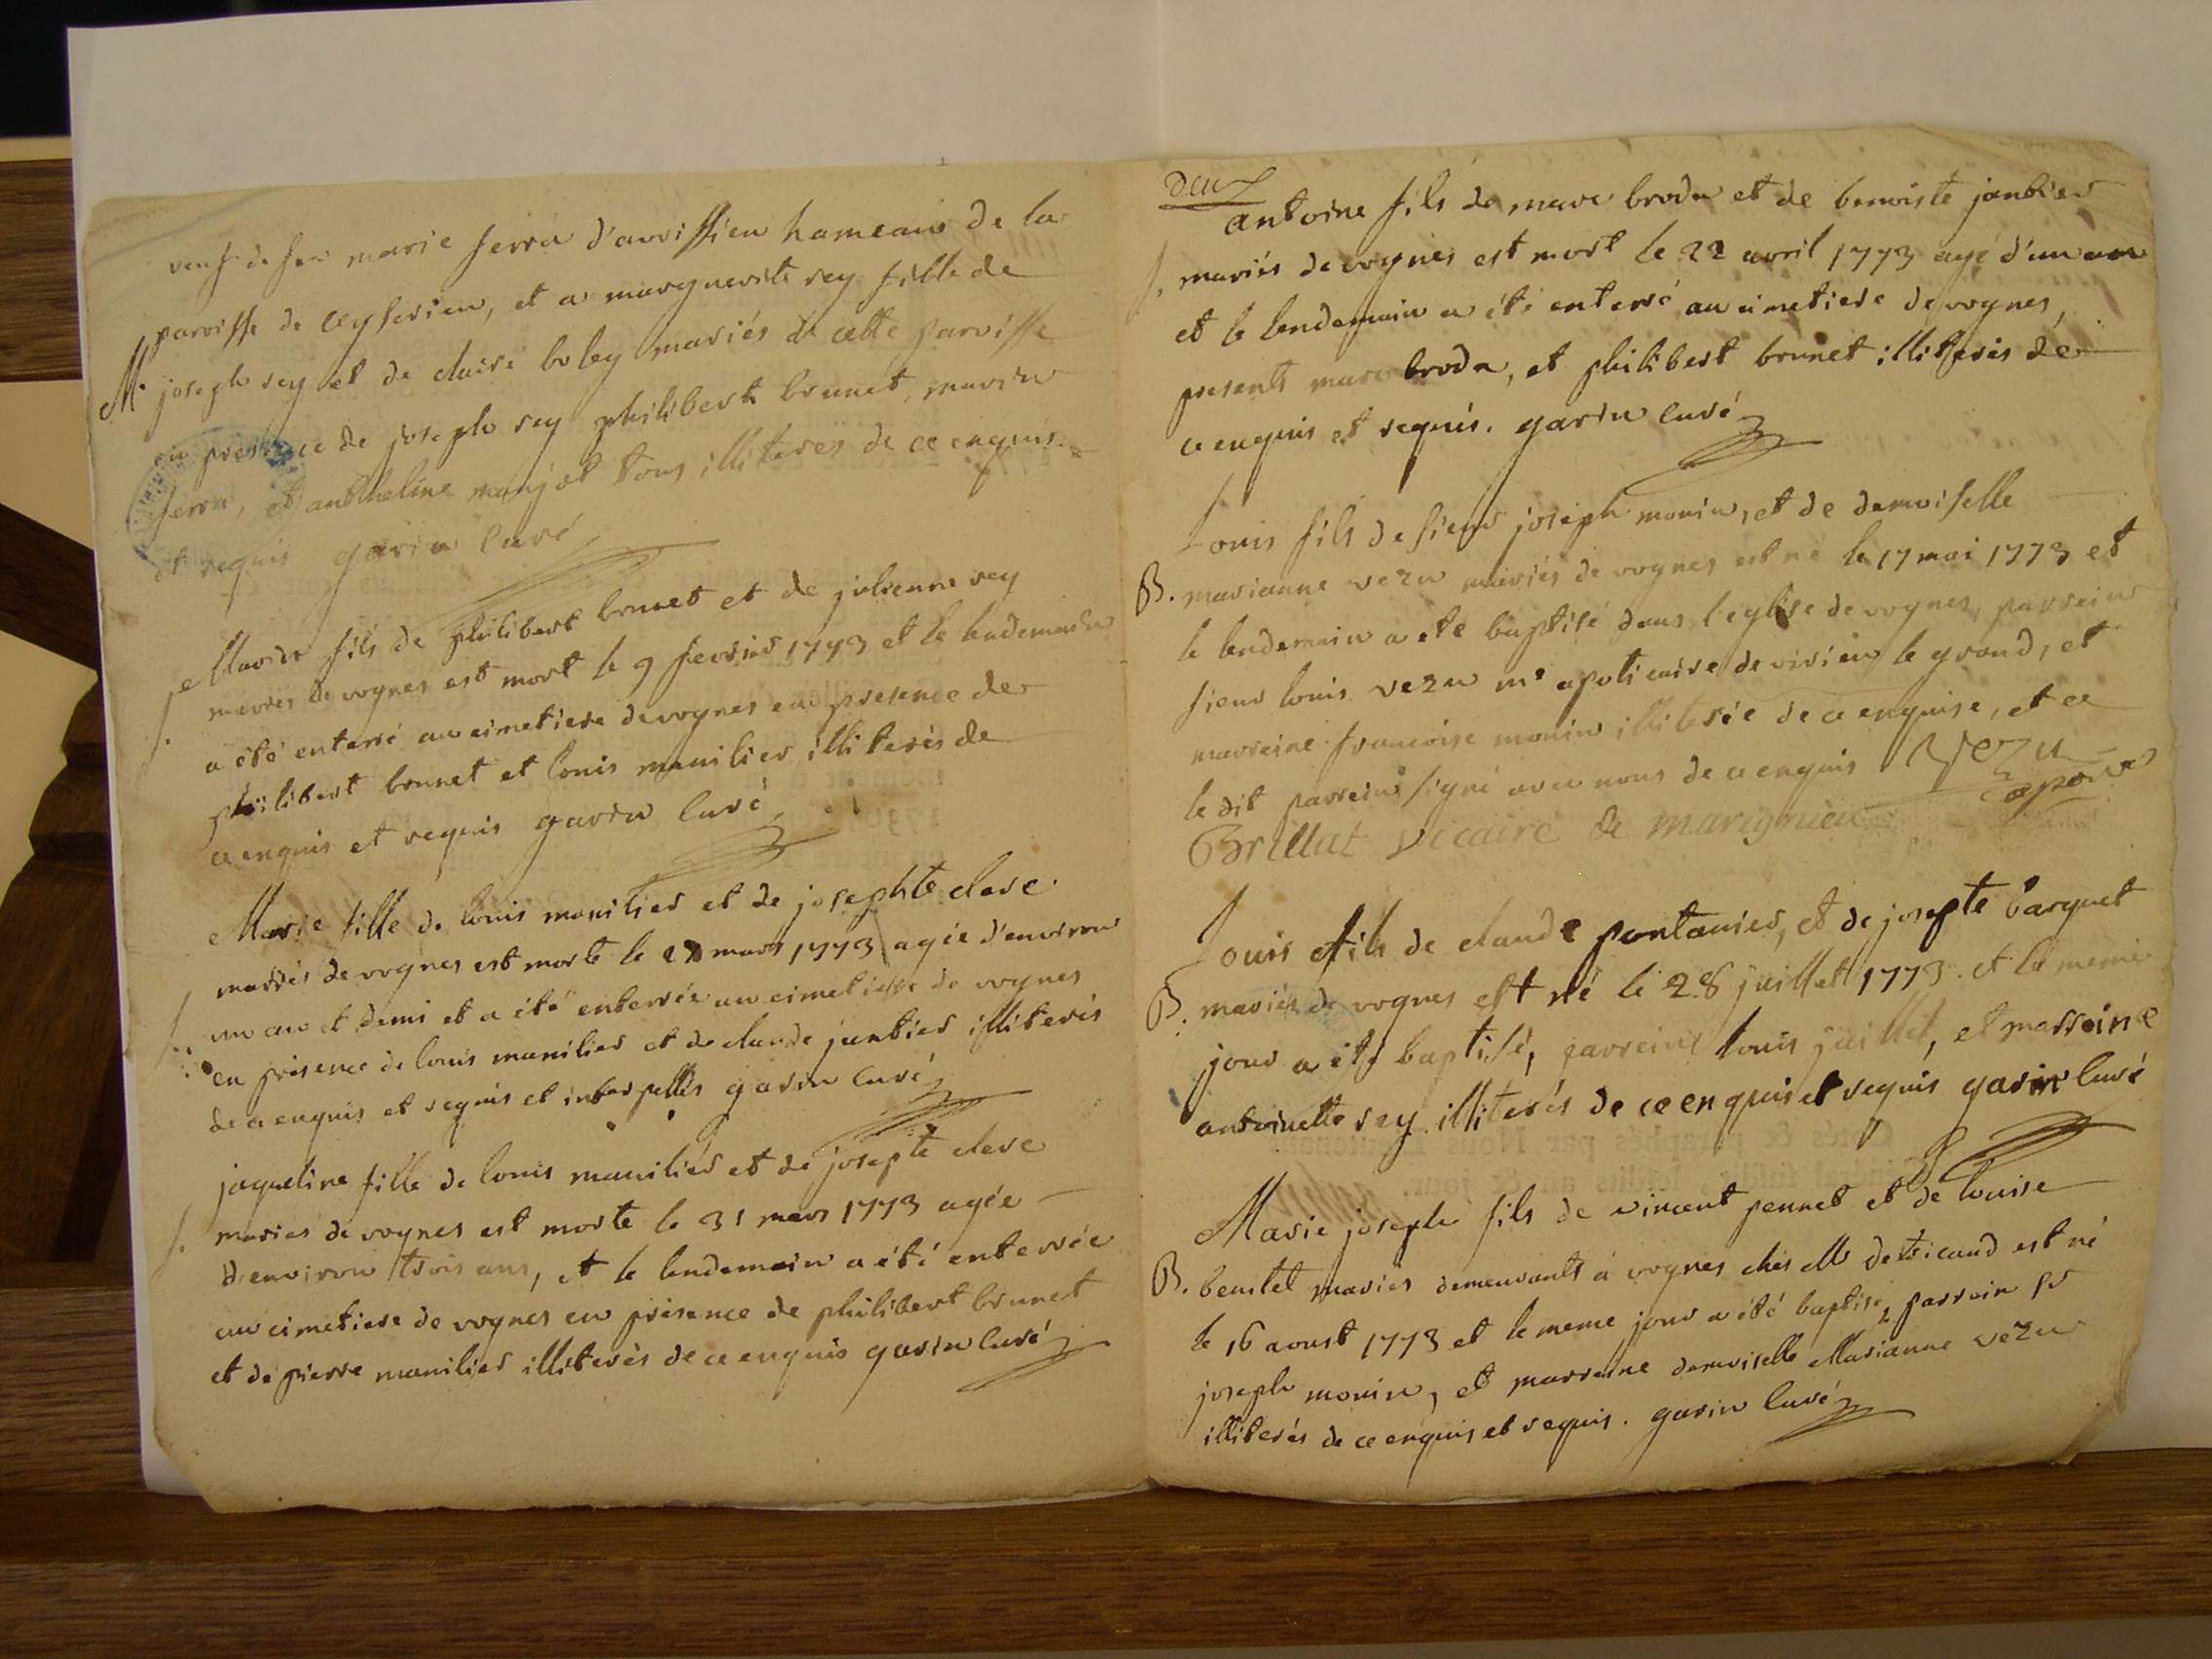 veuf de feu marie serra d'avvissieu hameaux de la
parroisse de ceyserieu, et a marguerite rey fille de
M. joseph rey et de claire boley mariés de cette parroisse
en presence de joseph rey philibert brunet, marin
serra, et anthelme monjot tous illiterés de ce enquis
et requis garin curé
Marin fils de philibert brunet et de julienne rey
S. mariés de vognes est mort le 9 fevrier 1773 et le lendemain
a été enterré au cimetiere de vognes en presence de
philibert brunet et louis manilier illiterés de
ce enquis et requis garin curé
Marie fille de louis manilier et de josephte clerc
mariés de vognes est morte le mars 1773 agée d'environ
S. un an et demi et a été enterrée au cimetiere de vognes
en presence de louis manilier et de claude jantier illiterés
de ce enquis et requis et interpellés garin curé
jaqueline fille de louis manilier et de josepte clerc
S. mariés de vognes est morte le 31 mars 1773 agée
d'environ trois ans, et le lendemain a été enterrée
au cimetiere de vognes en presence de philibert brunet
et de pierre manilier illiterés de ce enquis garin curé
deux
antoine fils de marc broda et de benoiste jantier
S. mariés de vognes est mort le 22 avril 1773 agé d'un an
et le lendemain a été enterré au cimetiere de vognes,
presents marc broda, et philibert brunet illiterés de
ce enquis et requis. garin curé
Louis fils de sieur joseph monin, et de demoiselle
B. marianne vezu mariés de vognes est né le 17 mai 1773 et
le lendemain a ete baptisé dans l'eglise de vognes, parrein
sieur louis vezu me apoticaire de virieu le grand, et
marreine francoise monin illiterée de ce enquise, et a
le dit parrein signé avec nous de ce enquis Vezu
Brillat vicaire de marignieu apore
Louis fils de claude pontanier, et de josepte barquet
B. mariés de vognes est né le 28 juillet 1773 et le meme
jour a été baptisé, parrein louis juillet, et marreine
antoinette rey illiterés de ce enquis et requis garin curé
Marie joseph fils de vincent pennet et de louise
B. beritel mariés demeurants á vognes chés Mr detricaud est né
le 16 aoust 1773 et le meme jour a été baptisé, parrein sr
joseph monin, et marreine demoiselle Marianne vezu
illiterés de ce enquis et requis. garin curé